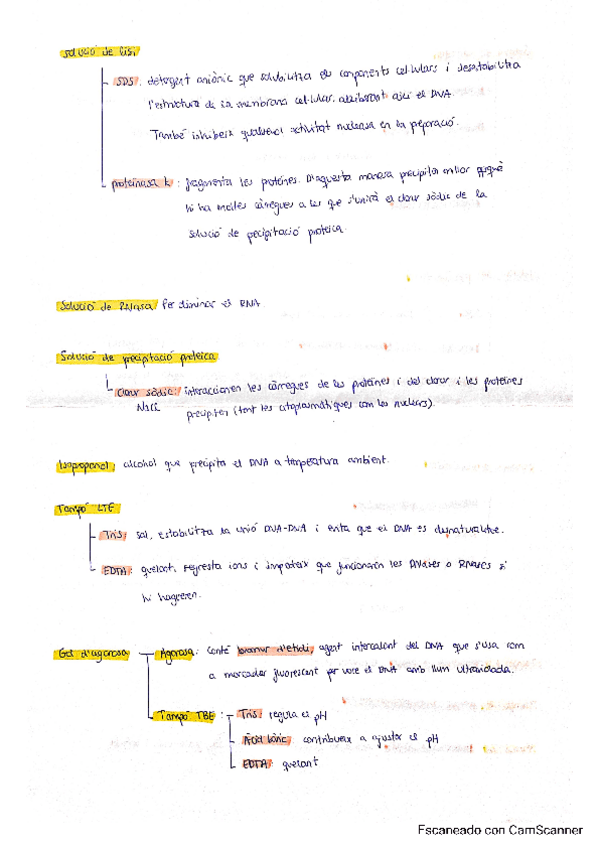 Solució de lisi
SDS: detergent aniònic que solubilitza els components cel·lulars i desestabilitza
l'estructura de la membrana cel·lular, alliberant així el DNA.
També inhibeix qualsevol activitat nucleasa en la preparació.
proteïnasa k: fragmenta les proteïnes. D'aquesta manera precipiten millor perquè
hi ha moltes càrregues a les que s'unirà el clorur sòdic de la
solució de precipitació proteica.
Solució de RNasa: Per eliminar el RNA
Solució de precipitació proteica
Clorur sòdic: interaccionen les càrregues de les proteïnes i del clorur i les proteïnes
NaCl precipiten (tant les citoplasmàtiques com les nuclears).
Isopropanol: alcohol que precipita el DNA a temperatura ambient.
Tampó LTE
Tris: sal, estabilitza la unió DNA-DNA i evita que el DNA es desnaturalitze.
EDTA: quelant, segresta ions i impedeix que funcionen les DNases o RNases si
hi hagueren.
Gel d'agarosa
Agarosa: conté bromur d'etidi, agent intercalant del DNA que s'usa com
a marcador fluorescent per veure el DNA amb llum ultraviolada.
Tampó TBE: Tris: regula el pH
Àcid bòric: contribueix a ajustar el pH
EDTA: quelant
Escaneado con CamScanner